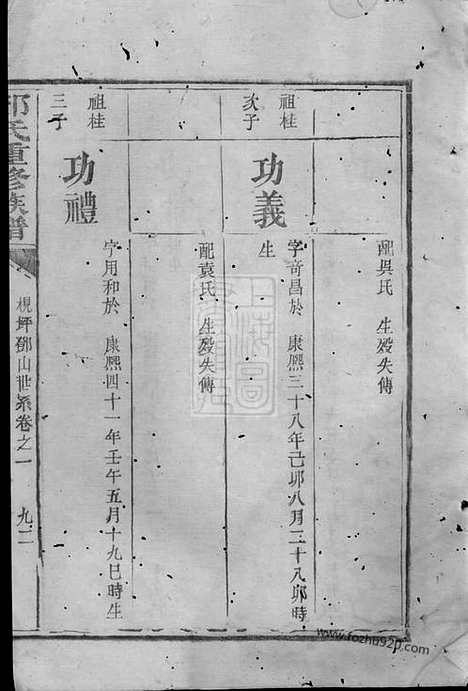 配吳氏 生歿失傳
祖桂次子
功義
字奇昌於 康熙三十八年己卯八月二十八卯時生
配袁氏 生歿失傳
祖桂三子
功禮
字用和於 康熙四十一年壬午五月十九巳時生
氏重修族譜
梘坪鄧山世系卷之一
九二
www.fozhu920.com